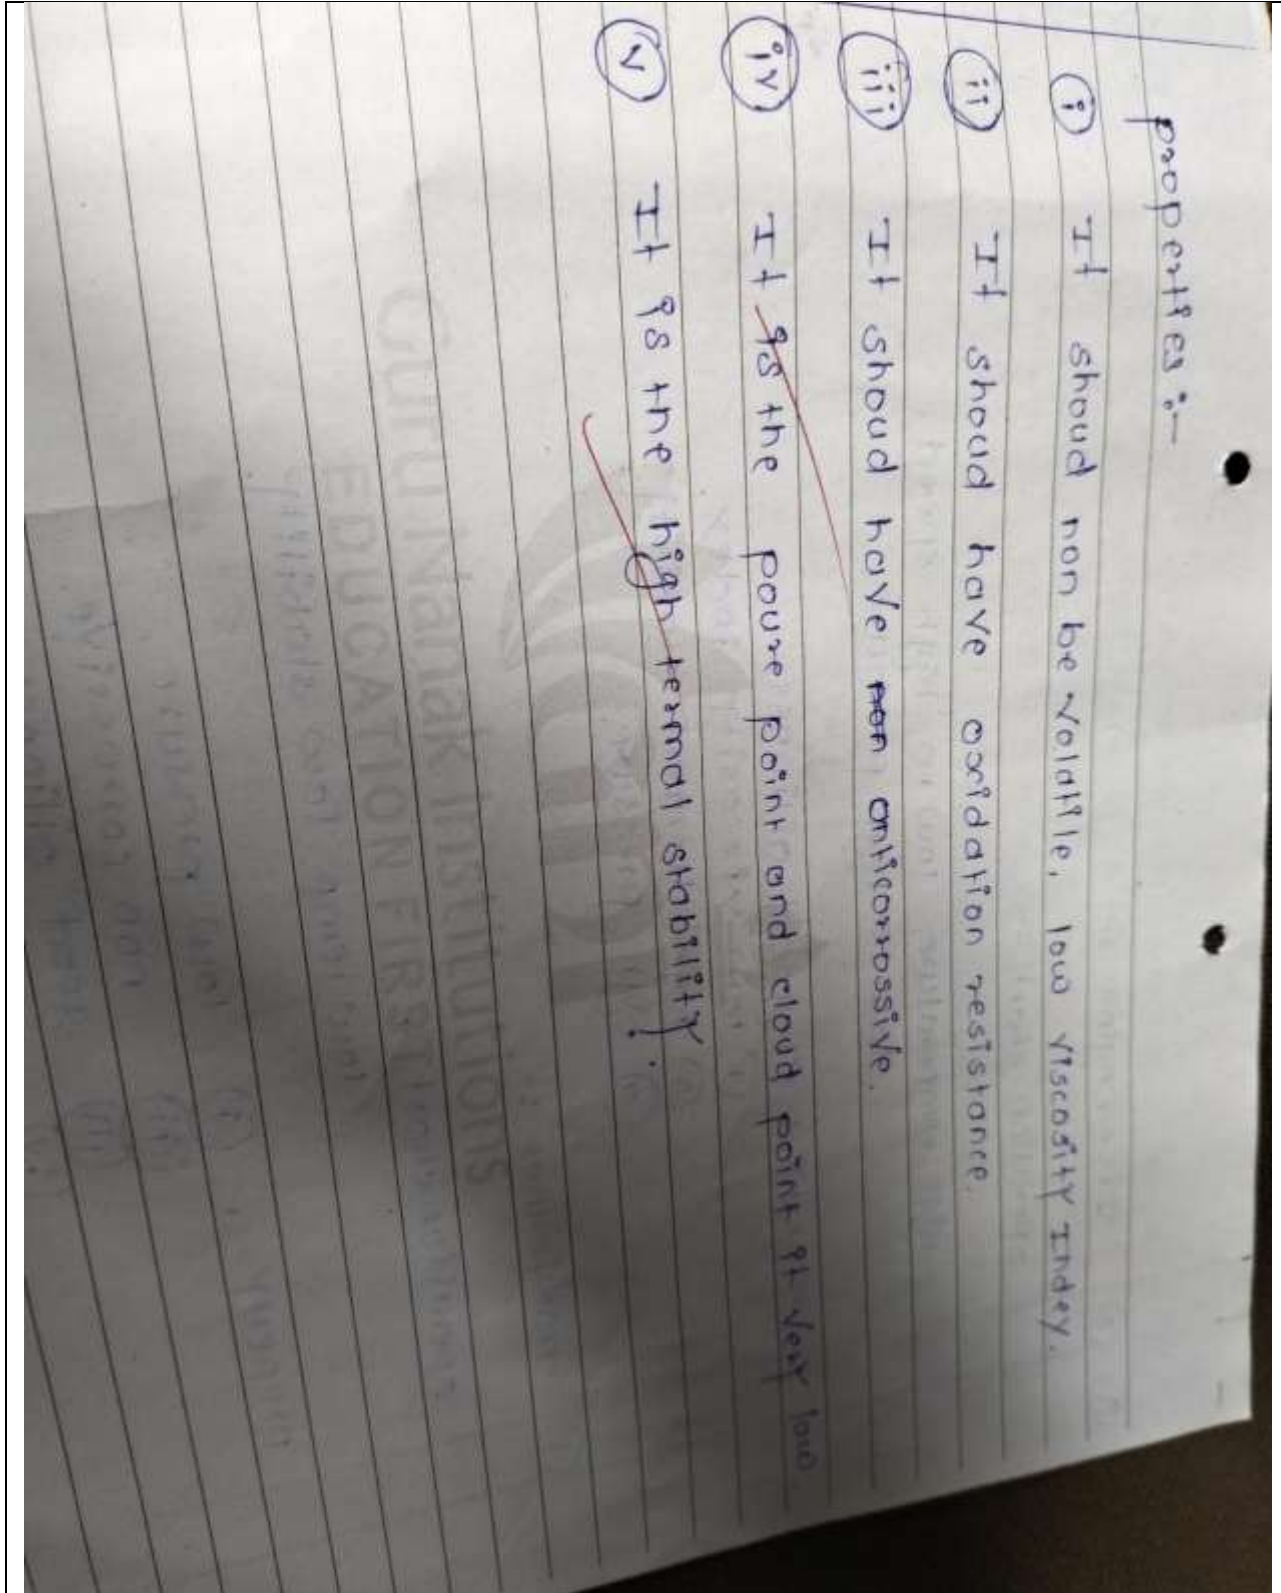 properties :-
(i) It shoud non be volatile, low viscosity Indey.
(ii) It shoud have oxidation resistance.
(iii) It shoud have non anticorrossive.
(iv) It is the poure point and cloud point it very low.
(v) It is the high termal stability.
Guru Nanak Institutions
EDUCATION FIRST